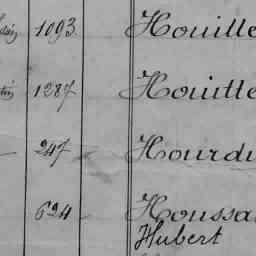 1093 Houille
1287 Houitte
247 Hourdu
624 Houssa
Hubert